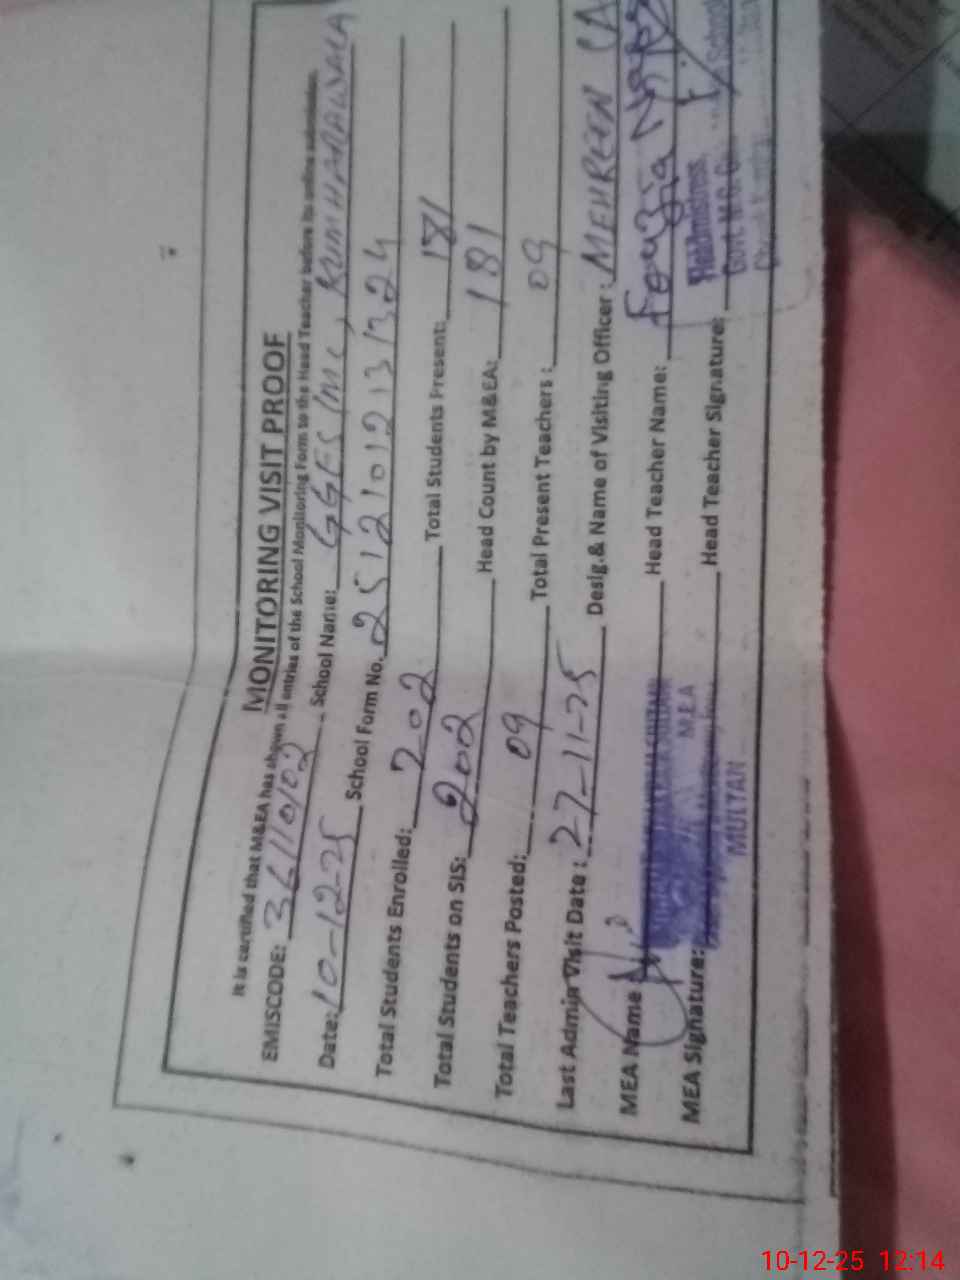 MONITORING VISIT PROOF
It is certified that M&EA has shown all entries of the School Monitoring Form to the Head Teacher before its online submission.
EMISCODE: 36110102 School Name: GGES MC, KUMHARAWALA
Date: 10-12-25 School Form No. 25121012131324
Total Students Enrolled: 202 Total Students Present: 181
Total Students on SIS: 202 Head Count by M&EA: 181
Total Teachers Posted: 09 Total Present Teachers: 09
Last Admin Visit Date: 27-11-25 Desig.& Name of Visiting Officer: MEHREEN
MEA Name: Head Teacher Name: Fouzia
MEA Signature: Head Teacher Signature:
MEA
MULTAN
Headmistress,
Govt. M.C. G. School
10-12-25 12:14